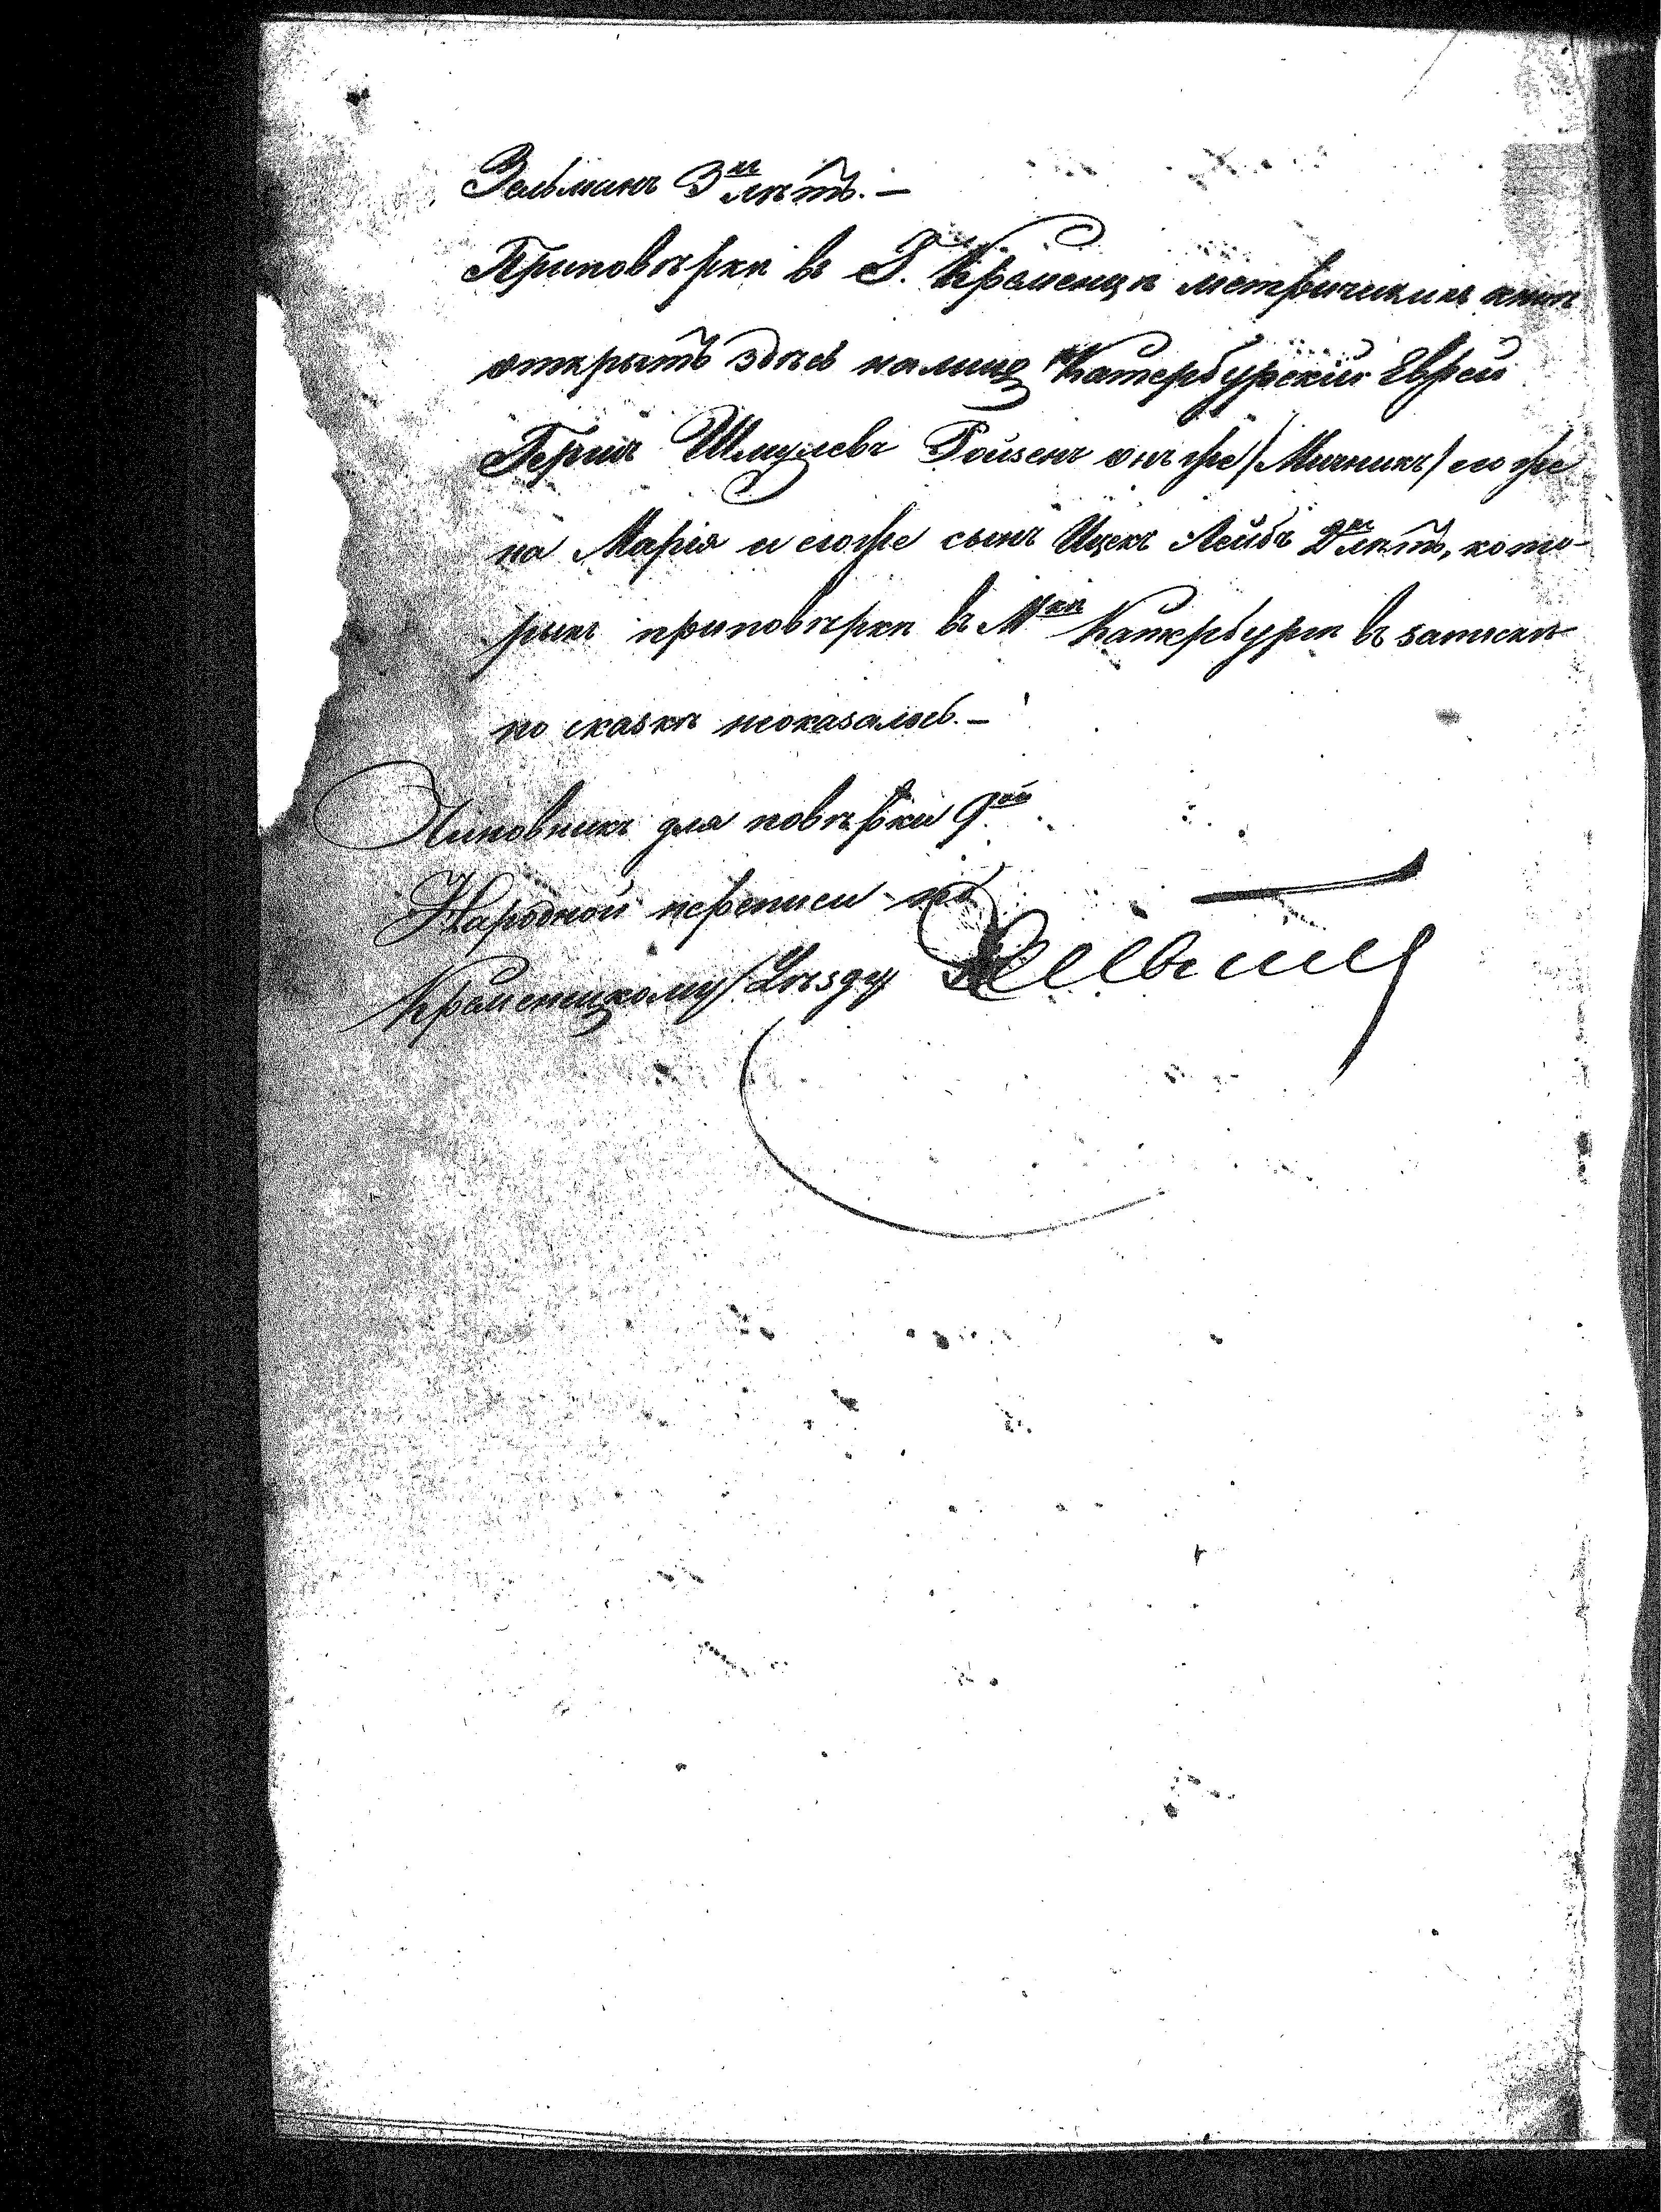 Зельманъ 3хъ лѣтъ. —
При повѣркѣ въ Г. Кременцѣ метрическихъ книгъ
открытъ здѣсь на лицо Катербурскій Еврей
Гершъ Шмулевъ Ройзенъ онъ же /Мичникъ/ его же
на Марія и его же сынъ Ицекъ Лейбъ 2хъ лѣтъ, кото-
рыхъ при повѣркѣ въ Мкѣ Катербургѣ въ записки
по сказкѣ неоказалось. —
Чиновникъ для повѣрки 9ой
Народной переписи по
Кременецкому Уѣзду